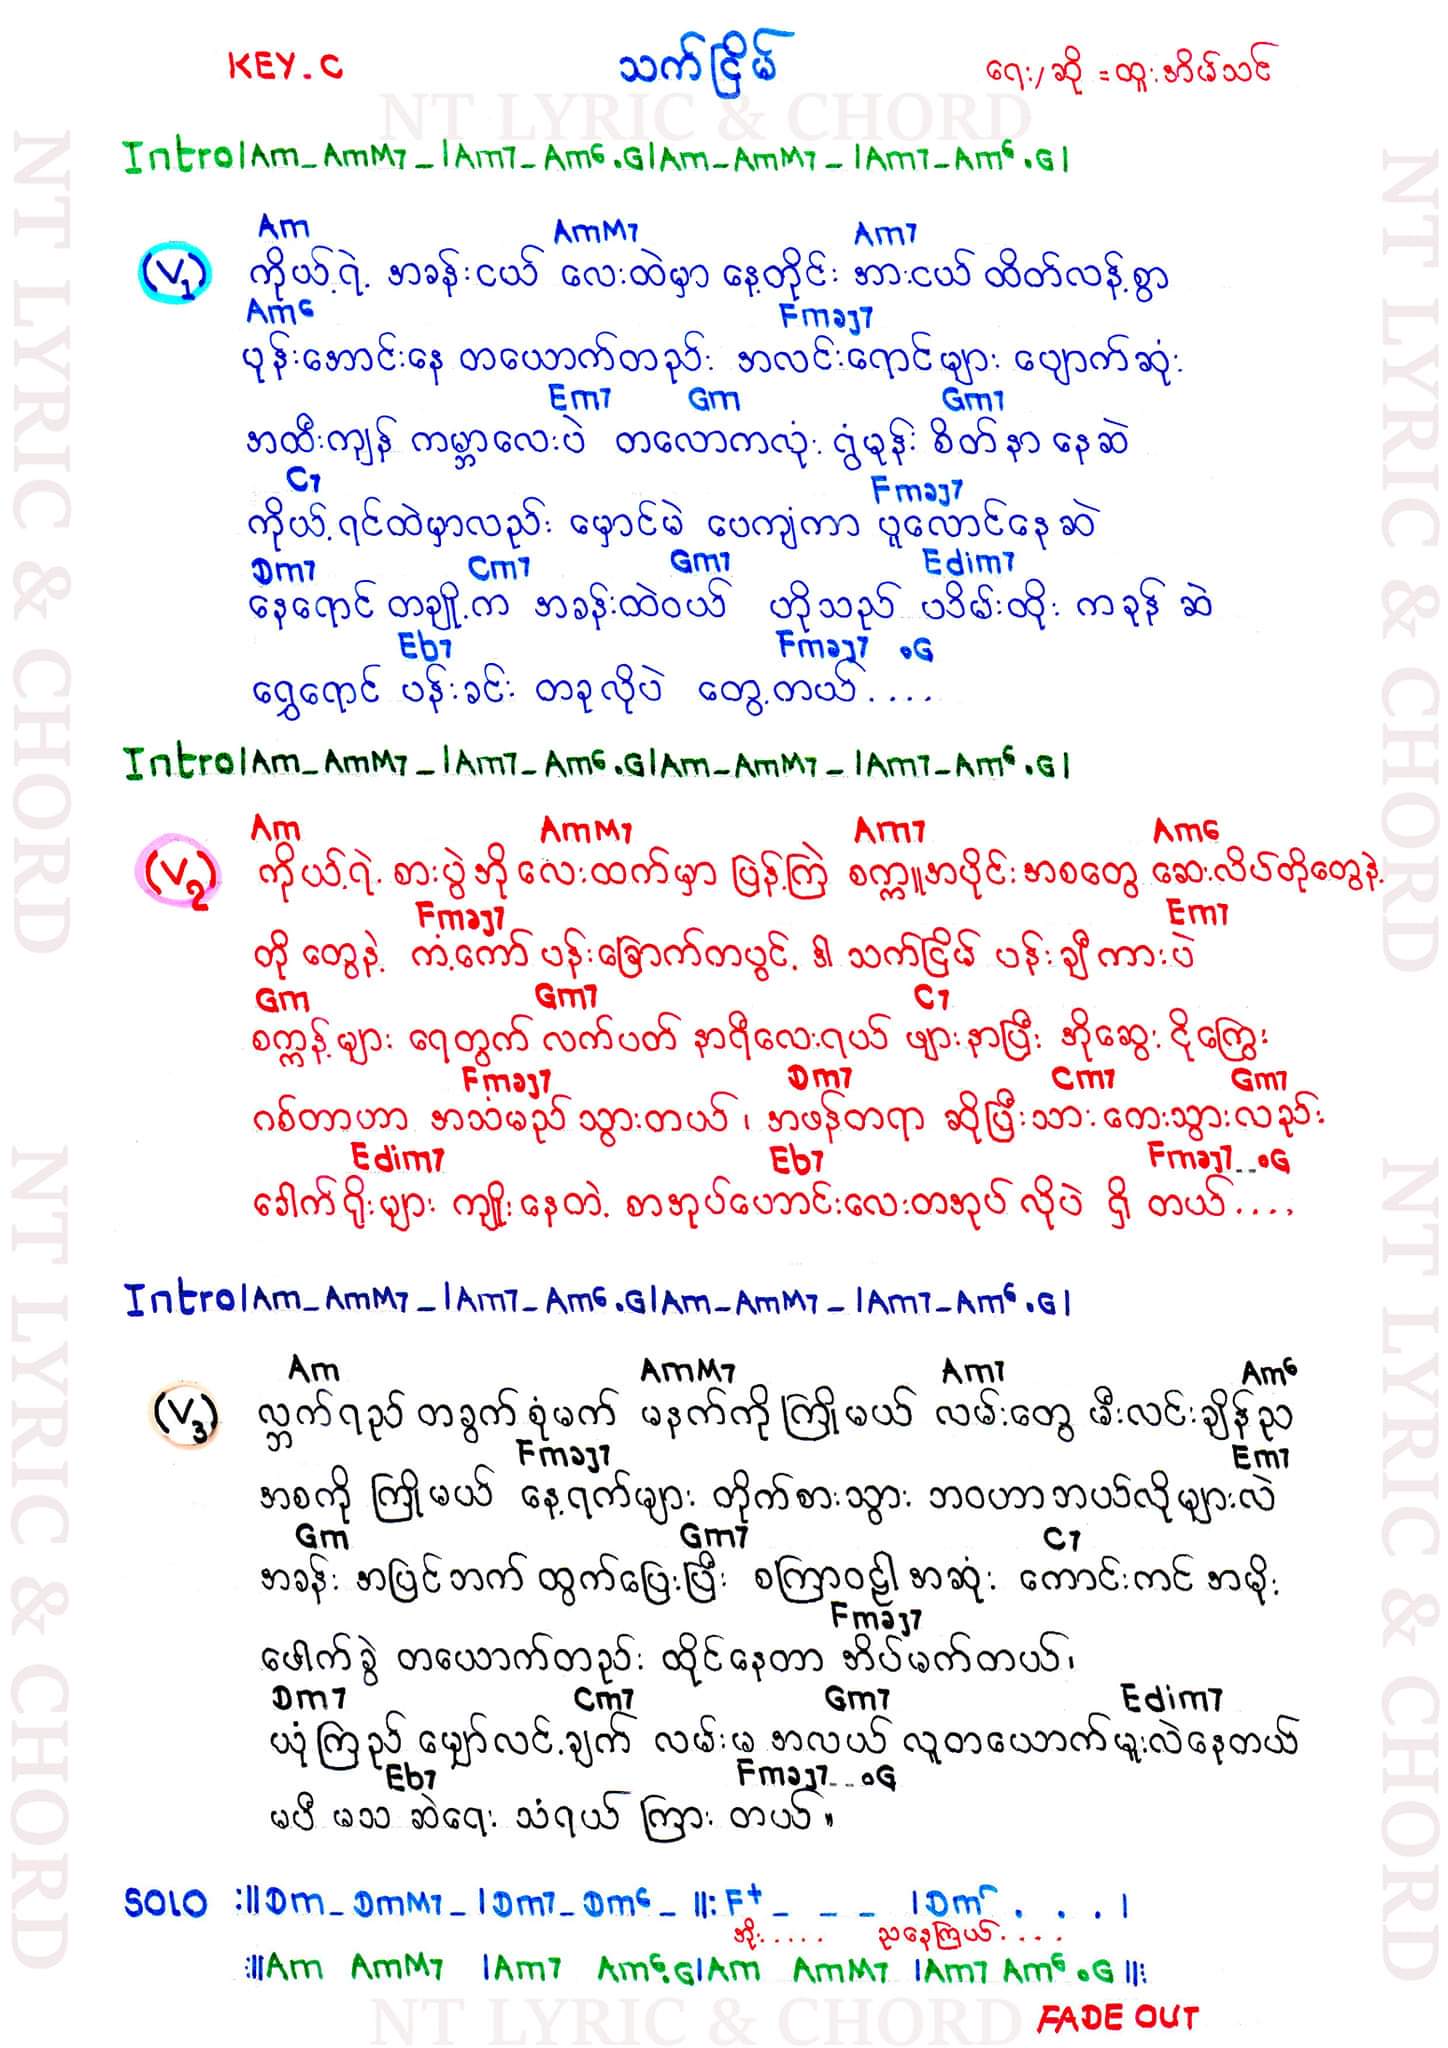 KEY.C သက်ငြိမ် ရေး/ဆို = ထူးအိမ်သင်
NT LYRIC & CHORD
Intro|Am_AmM7_|Am7_Am6.G|Am_AmM7_|Am7_Am6.G|
Am AmM7 Am7
(V1) ကိုယ့်ရဲ့ အခန်းငယ် လေးထဲမှာ နေ့တိုင်း အားငယ် ထိတ်လန့်စွာ
Am6 Fmaj7
ပုန်းအောင်းနေ တယောက်တည်း အလင်းရောင်များ ပျောက်ဆုံး
Em7 Gm Gm7
အထီးကျန် ကမ္ဘာလေးပဲ တလောကလုံး ရွံမုန်း စိတ်နာ နေဆဲ
C7 Fmaj7
ကိုယ့်ရင်ထဲမှာလည်း မှောင်မဲ ပေကျံကာ ပူလောင်နေဆဲ
Dm7 Cm7 Gm7 Edim7
နေရောင် တချို့က အခန်းထဲဝယ် ဟိုသည် ပသိမ်းထိုး ကခုန် ဆဲ
Eb7 Fmaj7 .G
ရွှေရောင် ပန်းခင်း တခုလိုပဲ တွေ့တယ်....
Intro|Am_AmM7_|Am7_Am6.G|Am_AmM7_|Am7_Am6.G|
Am AmM7 Am7 Am6
(V2) ကိုယ့်ရဲ့ စားပွဲအိုလေးထက်မှာ ပြန့်ကြဲ စက္ကူအပိုင်းအစတွေ ဆေးလိပ်တိုတွေနဲ့
Fmaj7 Em7
တို တွေနဲ့ ကံ့ကော် ပန်းခြောက်တပွင့် ဒါ သက်ငြိမ် ပန်းချီကားပဲ
Gm Gm7 C7
စက္ကန့်များ ရေတွက် လက်ပတ် နာရီလေးရယ် ဖျားနာပြီး အိုဆွေး ငိုကြွေး
Fmaj7 Dm7 Cm7 Gm7
ဂစ်တာဟာ အသံမည် သွားတယ်၊ အဖန်တရာ ဆိုပြီးသား တေးသွားလည်း
Edim7 Eb7 Fmaj7_ _.G
ခေါက်ရိုးများ ကျိုးနေတဲ့ စာအုပ်ဟောင်းလေးတအုပ် လိုပဲ ရှိ တယ်....
Intro|Am_AmM7_|Am7_Am6.G|Am_AmM7_|Am7_Am6.G|
Am AmM7 Am7 Am6
(V3) လ္ဘက်ရည် တခွက် စုံမက် မနက်ကို ကြိုမယ် လမ်းတွေ မီးလင်းချိန် ည
Fmaj7 Em7
အစကို ကြိုမယ် နေ့ရက်များ တိုက်စားသွား ဘဝဟာ ဘယ်လိုများလဲ
Gm Gm7 C7
အခန်း အပြင်ဘက် ထွက်ပြေးပြီး စကြာဝဠာ အဆုံး ကောင်းကင် အမိုး
Fmaj7
ဖေါက်ခွဲ တယောက်တည်း ထိုင်နေတာ အိပ်မက်တယ်၊
Dm7 Cm7 Gm7 Edim7
ယုံကြည် မျှော်လင့်ချက် လမ်းမ အလယ် လူတယောက်မူးလဲနေတယ်
Eb7 Fmaj7_ _.G
မပီ မသ ဆဲရေး သံရယ် ကြား တယ်။
SOLO :||Dm_DmM7_|Dm7_Dm6_||:F+_ _ _ |Dm . . . |
အိုး..... ညနေကြယ်....
:||Am AmM7 |Am7 Am6.G|Am AmM7 |Am7 Am6.G||:
NT LYRIC & CHORD
FADE OUT
NT LYRIC & CHORD
NT LYRIC & CHORD
NT LYRIC & CHORD
NT LYRIC & CHORD